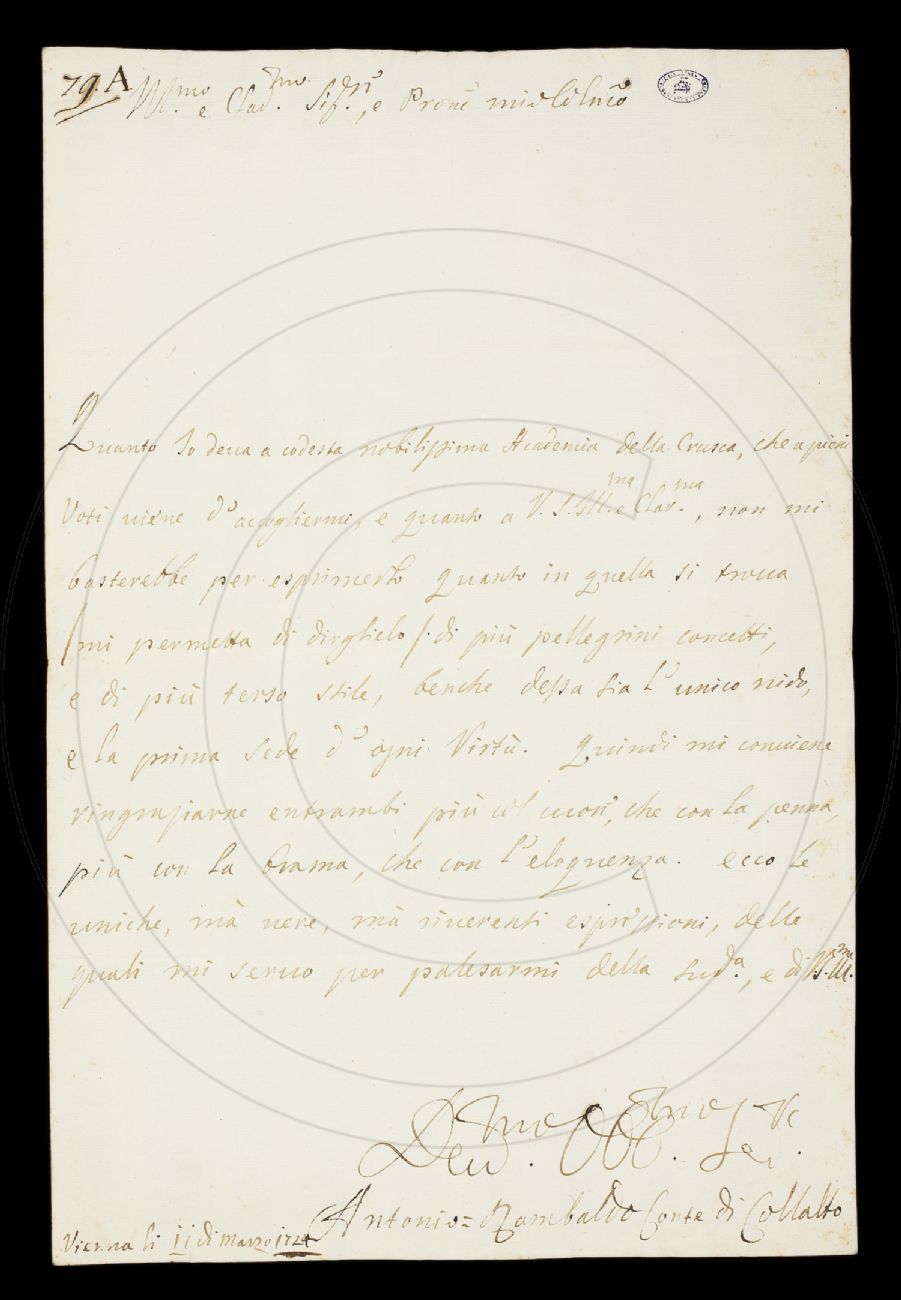 79. A
Ill.mo e Clar.mo Sig.r, e Prone mio Colmo
Quanto Io deua a codesta nobilissima Academia della Crusca, che a pieni
Voti uiene d'accogliermi, e quanto a V. S. Ill.ma e Clar.ma, non mi
basterebbe per esprimerlo quanto in quella si troua
/mi permetta di dirglielo/. di più pellegrini concetti,
e di più terso stile, benche dessa sia l'unico nido,
e la prima Sede d'ogni Virtù. Quindi mi conuiene
ringraziarne entrambi più col cuore, che con la penna,
più con la brama, che con l'eloquenza. ecco le
uniche, mà uere, mà riuerenti espressioni, delle
quali mi seruo per palesarmi della sud.a, e di V.S. Ill.ma
Deu.mo Obb.mo Ser.re
Antonio= Rambaldo Conte di Collalto
Vienna li 11 di Marzo 1724